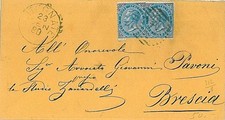 All' Onorevole
Sig Avvocato Giovanni Pavoni
Studio Zanardelli
Brescia